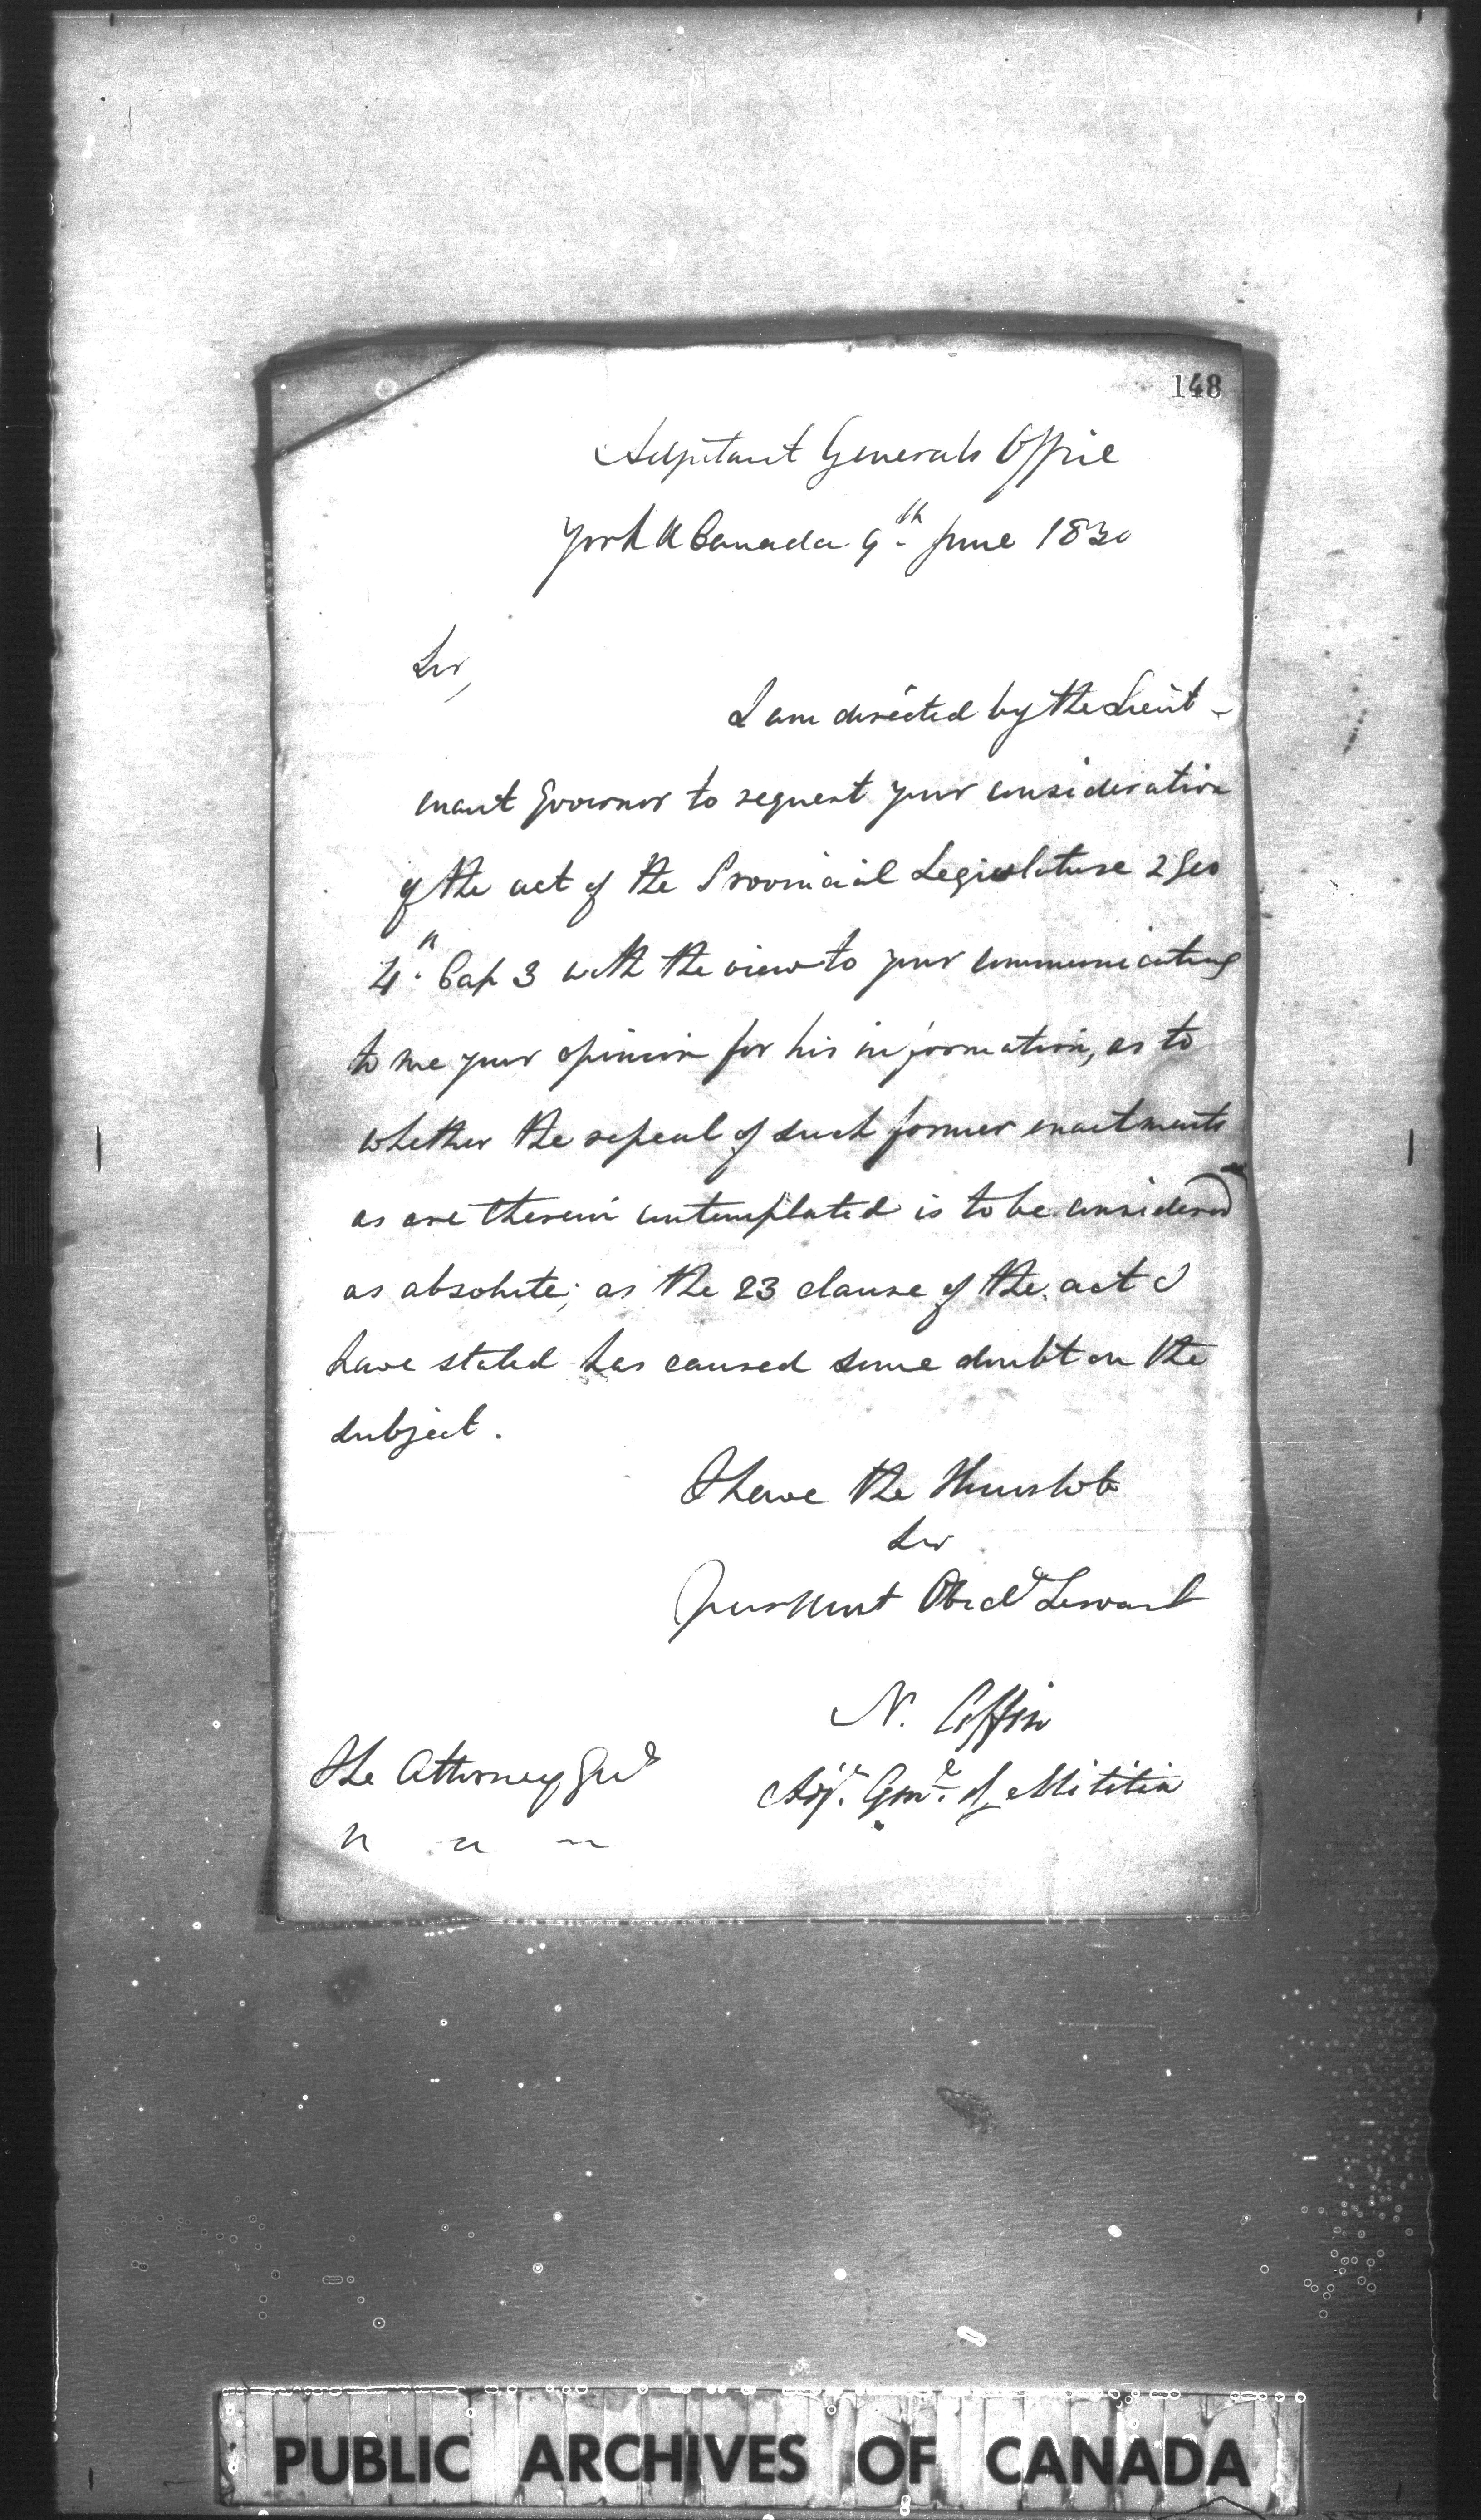 148
Adjutant Generals Office
York U Canada 9th June 1830
Sir,
I am directed by the Lieut-
enant Governor to request your consideration
of the act of the Provincial Legislature 2 Geo
4th Cap 3 with the view to your communicating
to me your opinion for his information, as to
whether the repeal of such former enactments
as are therein contemplated is to be considered
as absolute; as the 23 clause of the act I
have stated has caused some doubt on the
subject.
I have the Honor to be
Sir
Your Most Obedt Servant
N. Coffin
Adjt. Genl. of Militia
The Attorney Genl
" " "
PUBLIC ARCHIVES OF CANADA